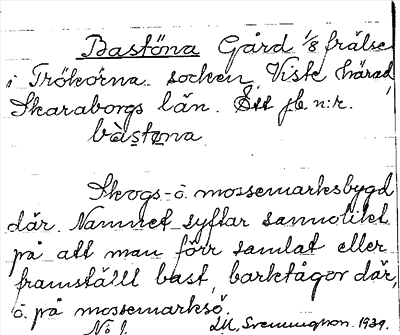 Bastöna Gård 1/8 frälse
i Trökörna socken, Viste härad,
Skaraborgs län. Ett jb. n:r.
bàstøna
Skogs- o. mossemarksbygd
där. Namnet syftar sannolikt
på att man förr samlat eller
framställt bast, barktågor där,
o. på mossemarksö.
No 1. 1939.